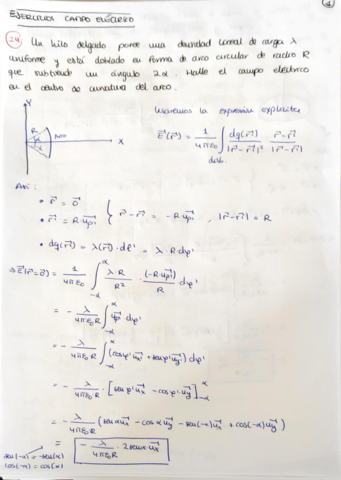 EJERCICIOS CAMPO ELÉCTRICO
24. Un hilo delgado posee una densidad lineal de carga λ
uniforme y está doblado en forma de arco circular de radio R
que subtiende un ángulo 2α. Halle el campo eléctrico
en el centro de curvatura del arco.
Y
R
α
α
Arco
X
Usaremos la expresión explícita
E⃗(r⃗) = 1/4πε₀ ∫dist. dq(r⃗')/|r⃗-r⃗'|² · r⃗-r⃗'/|r⃗-r⃗'|
Así:
• r⃗ = 0⃗
• r⃗' = R·u⃗ρ' } r⃗-r⃗' = -R·u⃗ρ' , |r⃗-r⃗'| = R
• dq(r⃗') = λ(r⃗')·dl' = λ·R·dφ'
⇒ E⃗(r⃗=0⃗) = 1/4πε₀ ∫_{-α}^{α} λ·R/R² · (-R·u⃗ρ')/R dφ'
= - λ/4πε₀R ∫_{-α}^{α} u⃗ρ' dφ'
= - λ/4πε₀R ∫_{-α}^{α} (cosφ'u⃗x + senφ'u⃗y) dφ'
= - λ/4πε₀R · [senφ'u⃗x - cosφ'u⃗y]_{-α}^{α}
= - λ/4πε₀R (senαu⃗x - cosαu⃗y - sen(-α)u⃗x + cos(-α)u⃗y)
= - λ/4πε₀R · 2senαu⃗x
sen(-α) = -sen(α)
cos(-α) = cos(α)